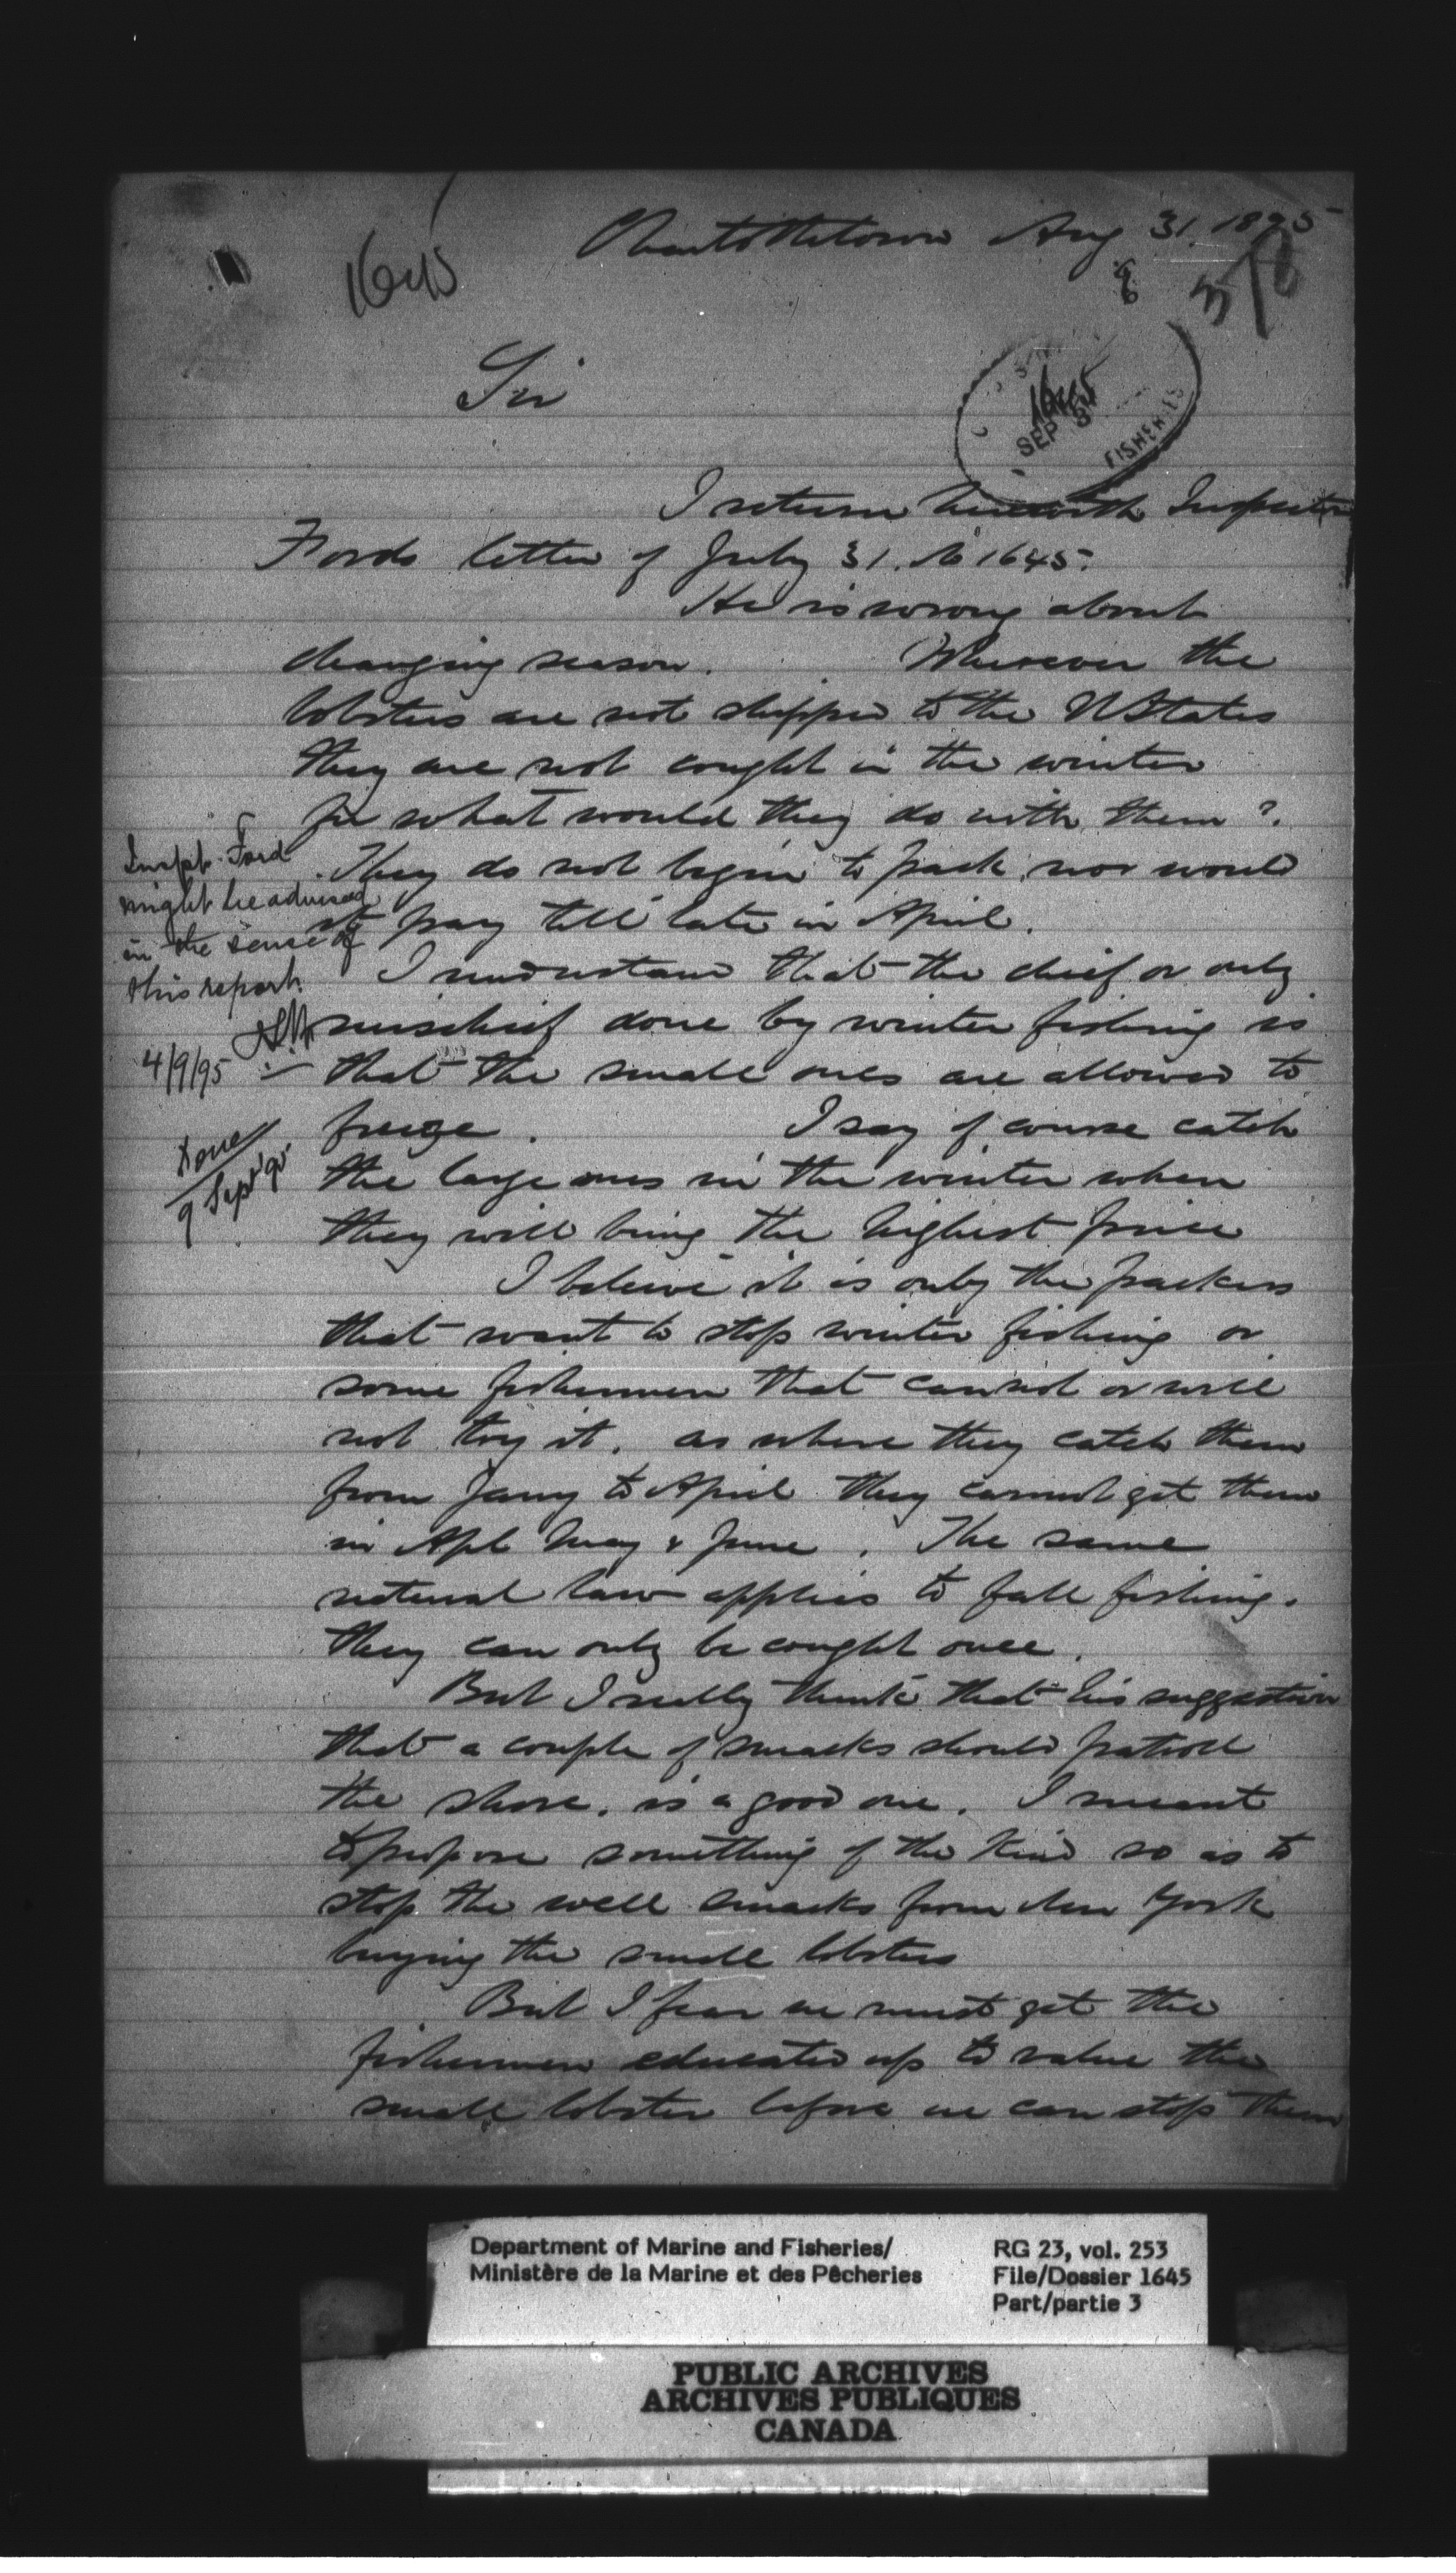 Charlottetown Aug 31. 1895
1645
Sir
1645
SEP
FISHERIES
I return herewith Inspector
Fords letter of July 31. No 1645.
He is wrong about
changing season. Wherever the
lobsters are not shipped to the UStates
they are not caught in the winter
for what would they do with them?
They do not begin to pack, nor would
it pay till late in April.
I understand that the chief or only
mischief done by winter fishing is
that the small ones are allowed to
freeze. I say of course catch
the large ones in the winter when
they will bring the highest price
I believe it is only the packers
that want to stop winter fishing or
some fishermen that cannot or will
not try it. as where they catch them
from Jany to April they cannot get them
in Apl May & June. The same
natural law applies to fall fishing.
they can only be caught once.
But I really think that his suggestion
that a couple of smacks should patroll
the shore. is a good one. I meant
to propose something of the kind so as to
stop the well smacks from New York
buying the small lobsters
But I fear we must get the
fishermen educated up to value the
small lobster before we can stop them
Inspr. Ford
might be advised
in the sense of
this report.
4/9/95
Done
9 Sept 95
Department of Marine and Fisheries/
Ministère de la Marine et des Pêcheries
RG 23, vol. 253
File/Dossier 1645
Part/partie 3
PUBLIC ARCHIVES
ARCHIVES PUBLIQUES
CANADA